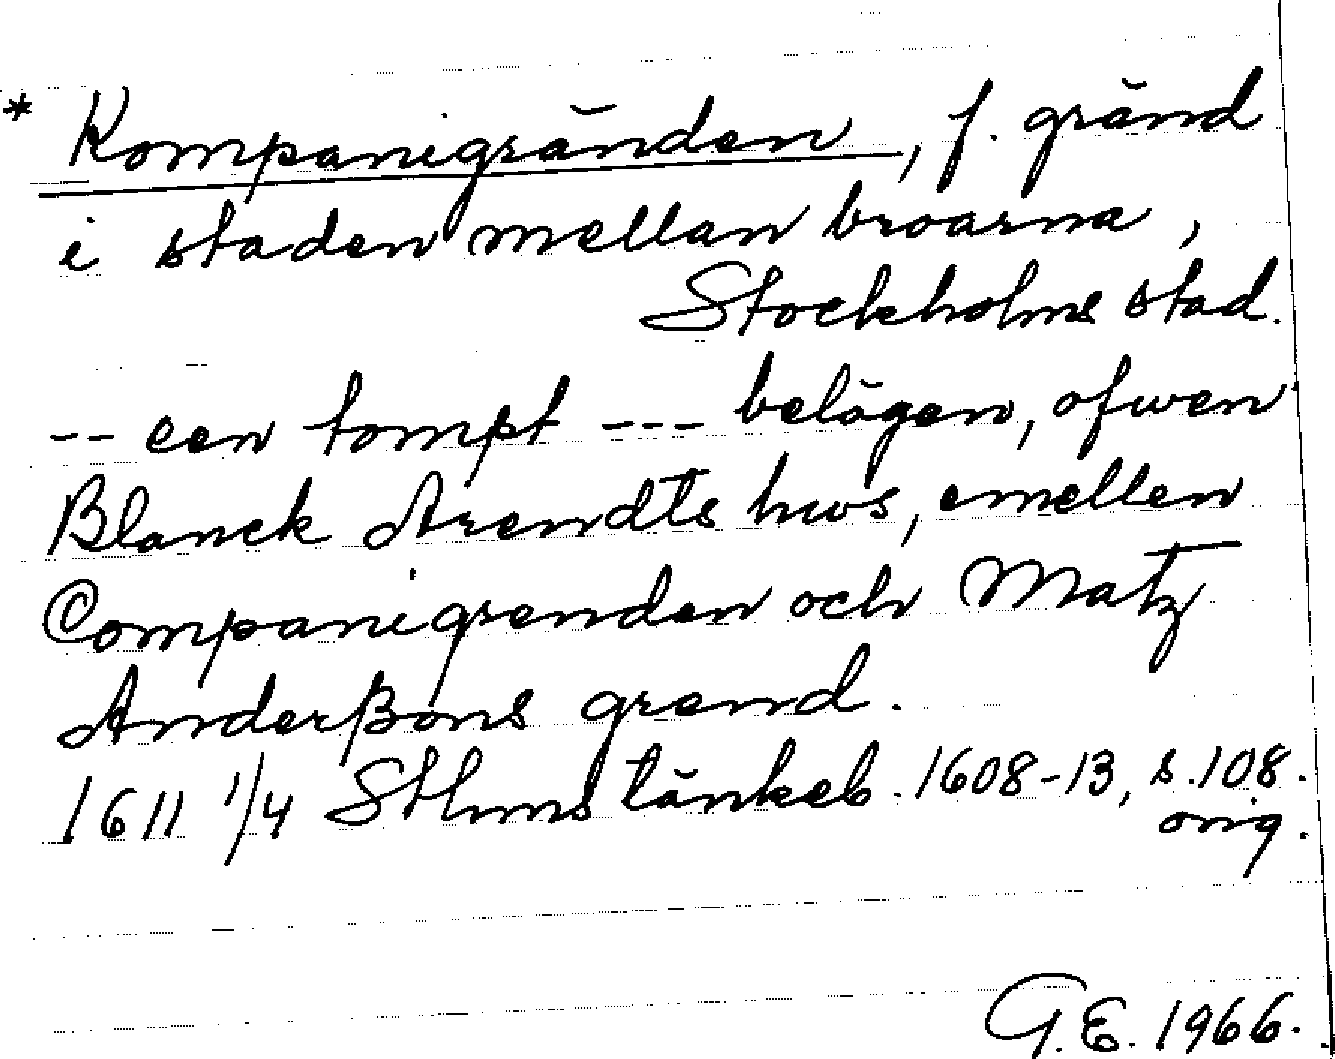 * Kompanigränden, f. gränd
i staden mellan broarna,
Stockholms stad.
-- een tompt --- belägen, ofwen
Blanck Arendtz hws, emellen
Companigrenden och Matz
Anderßons grend.
1611 1/4 Sthms tänkeb. 1608-13, s. 108.
orig.
G.E. 1966.